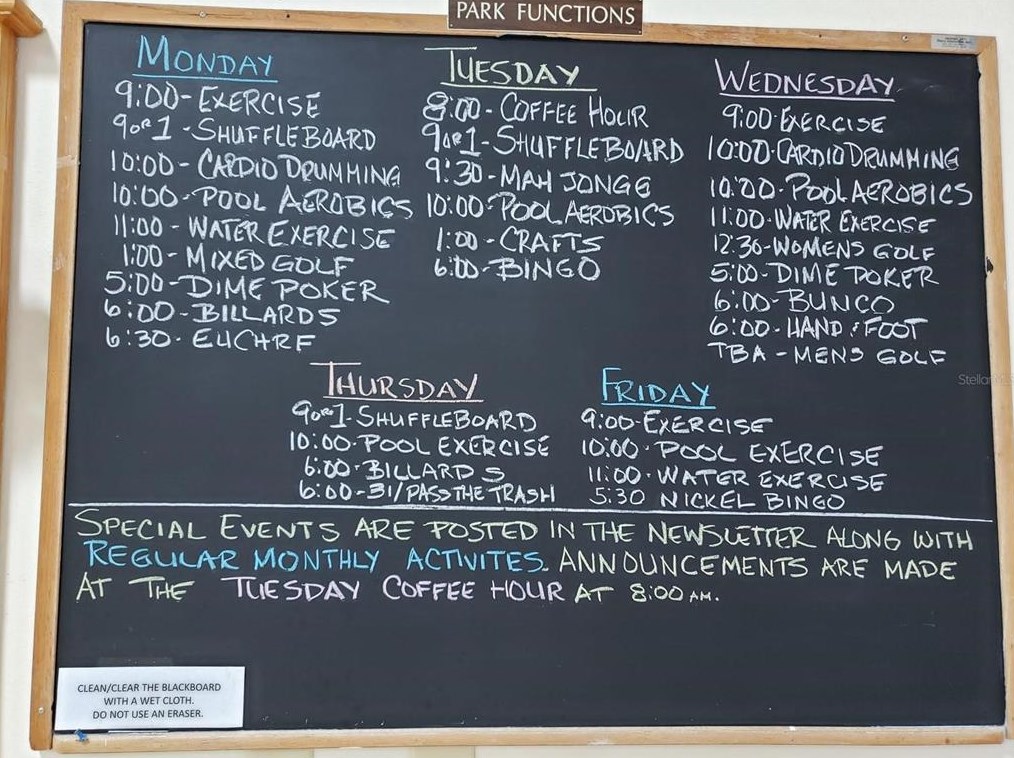 PARK FUNCTIONS
MONDAY
9:00- EXERCISE
9 OR 1 - SHUFFLEBOARD
10:00- CARDIO DRUMMING
10:00 - POOL AEROBICS
11:00 - WATER EXERCISE
1:00- MIXED GOLF
5:00-DIME POKER
6:00 - BILLARDS
6:30 - EUCHRE
TUESDAY
8:00 - COFFEE HOUR
9 OR 1-SHUFFLEBOARD
9:30 - MAH JONGG
10:00-POOL AEROBICS
1:00 - CRAFTS
6:00-BINGO
WEDNESDAY
9:00 EXERCISE
10:00-CARDIO DRUMMING
10:00-POOL AEROBICS
11:00-WATER EXERCISE
12:30-WOMENS GOLF
5:00-DIME POKER
6:00-BUNCO
6:00-HAND & FOOT
TBA - MENS GOLF
THURSDAY
9 OR 1-SHUFFLEBOARD
10:00-POOL EXERCISE
6:00-BILLARDS
6:00-31/PASS THE TRASH
FRIDAY
9:00-EXERCISE
10:00-POOL EXERCISE
11:00-WATER EXERCISE
5:30 NICKEL BINGO
SPECIAL EVENTS ARE POSTED IN THE NEWSLETTER ALONG WITH
REGULAR MONTHLY ACTIVITES. ANNOUNCEMENTS ARE MADE
AT THE TUESDAY COFFEE HOUR AT 8:00 AM.
CLEAN/CLEAR THE BLACKBOARD
WITH A WET CLOTH.
DO NOT USE AN ERASER.